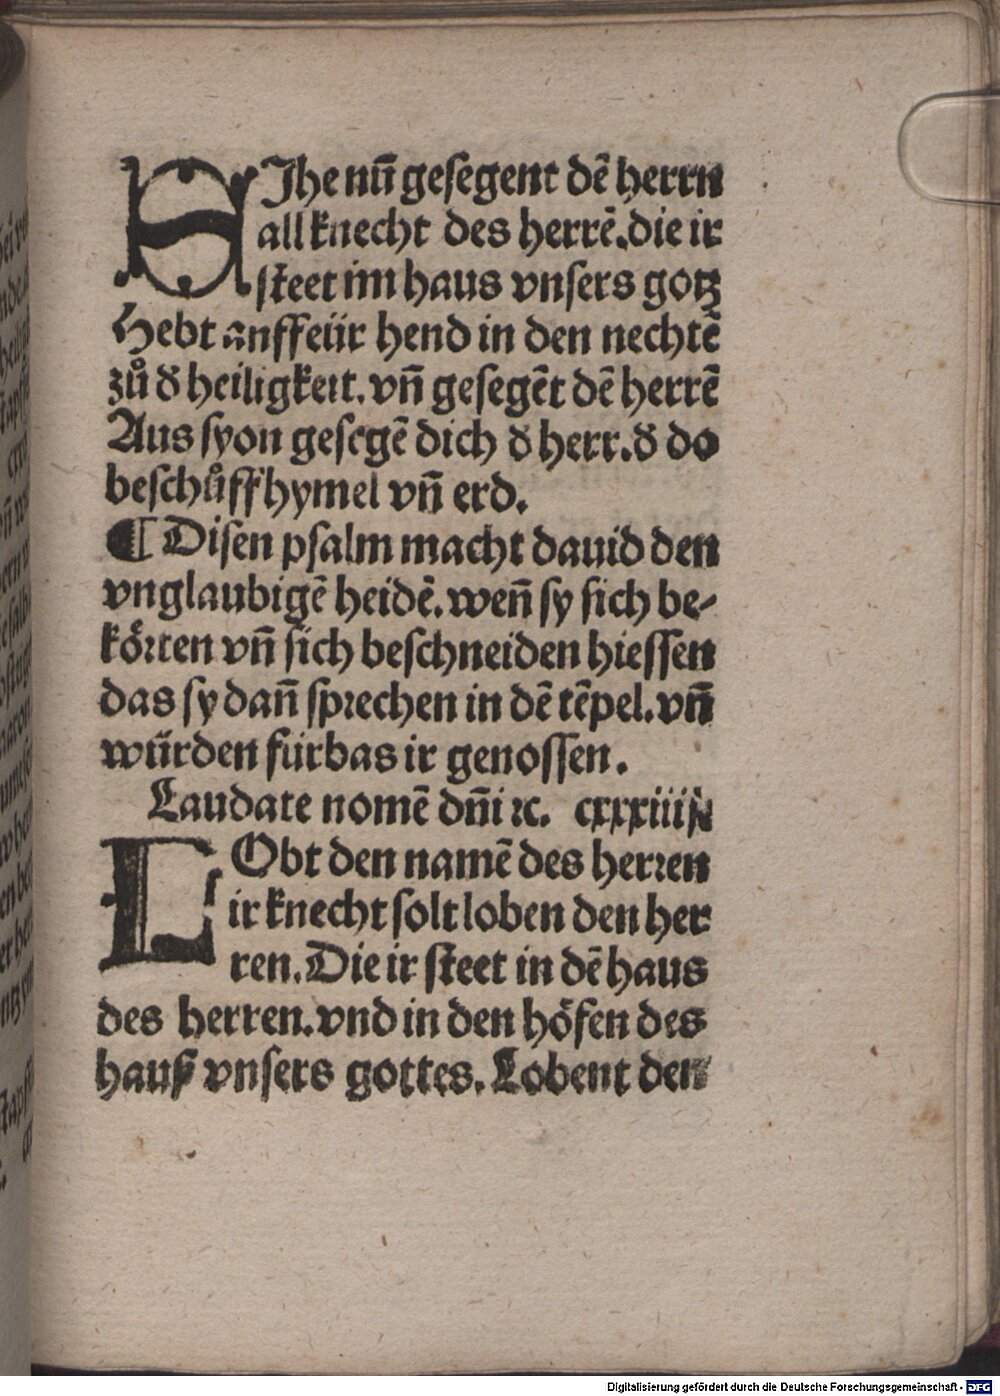 SIhe nū geſegent dē herrn
all knecht des herrē. die ir
ſteet im haus vnſers gotz
Hebt anff eür hend in den nechtē
zů d̕ heiligkeit. vn̄ geſegēt dē herrē
Aus ſyon geſegē dich d̕ herr. d̕ do
beſchůff hymel vn̄ erd.
¶ Diſen pſalm macht dauid den
vnglaubigē heidē. wen̄ ſy ſich be⸗
koͤrten vn̄ ſich beſchneiden hieſſen
das ſy dan̄ ſprechen in dē tēpel. vn̄
wuͤrden fürbas ir genoſſen.
Laudate nomē dn̄i ꝛc. cxxxiiij
LObt den namē des herren
ir knecht ſolt loben den her
ren. Die ir ſteet in dē haus
des herren. vnd in den hoͤfen des
hauß vnſers gottes. Lobent den
Digitalisierung gefördert durch die Deutsche Forschungsgemeinschaft - DFG